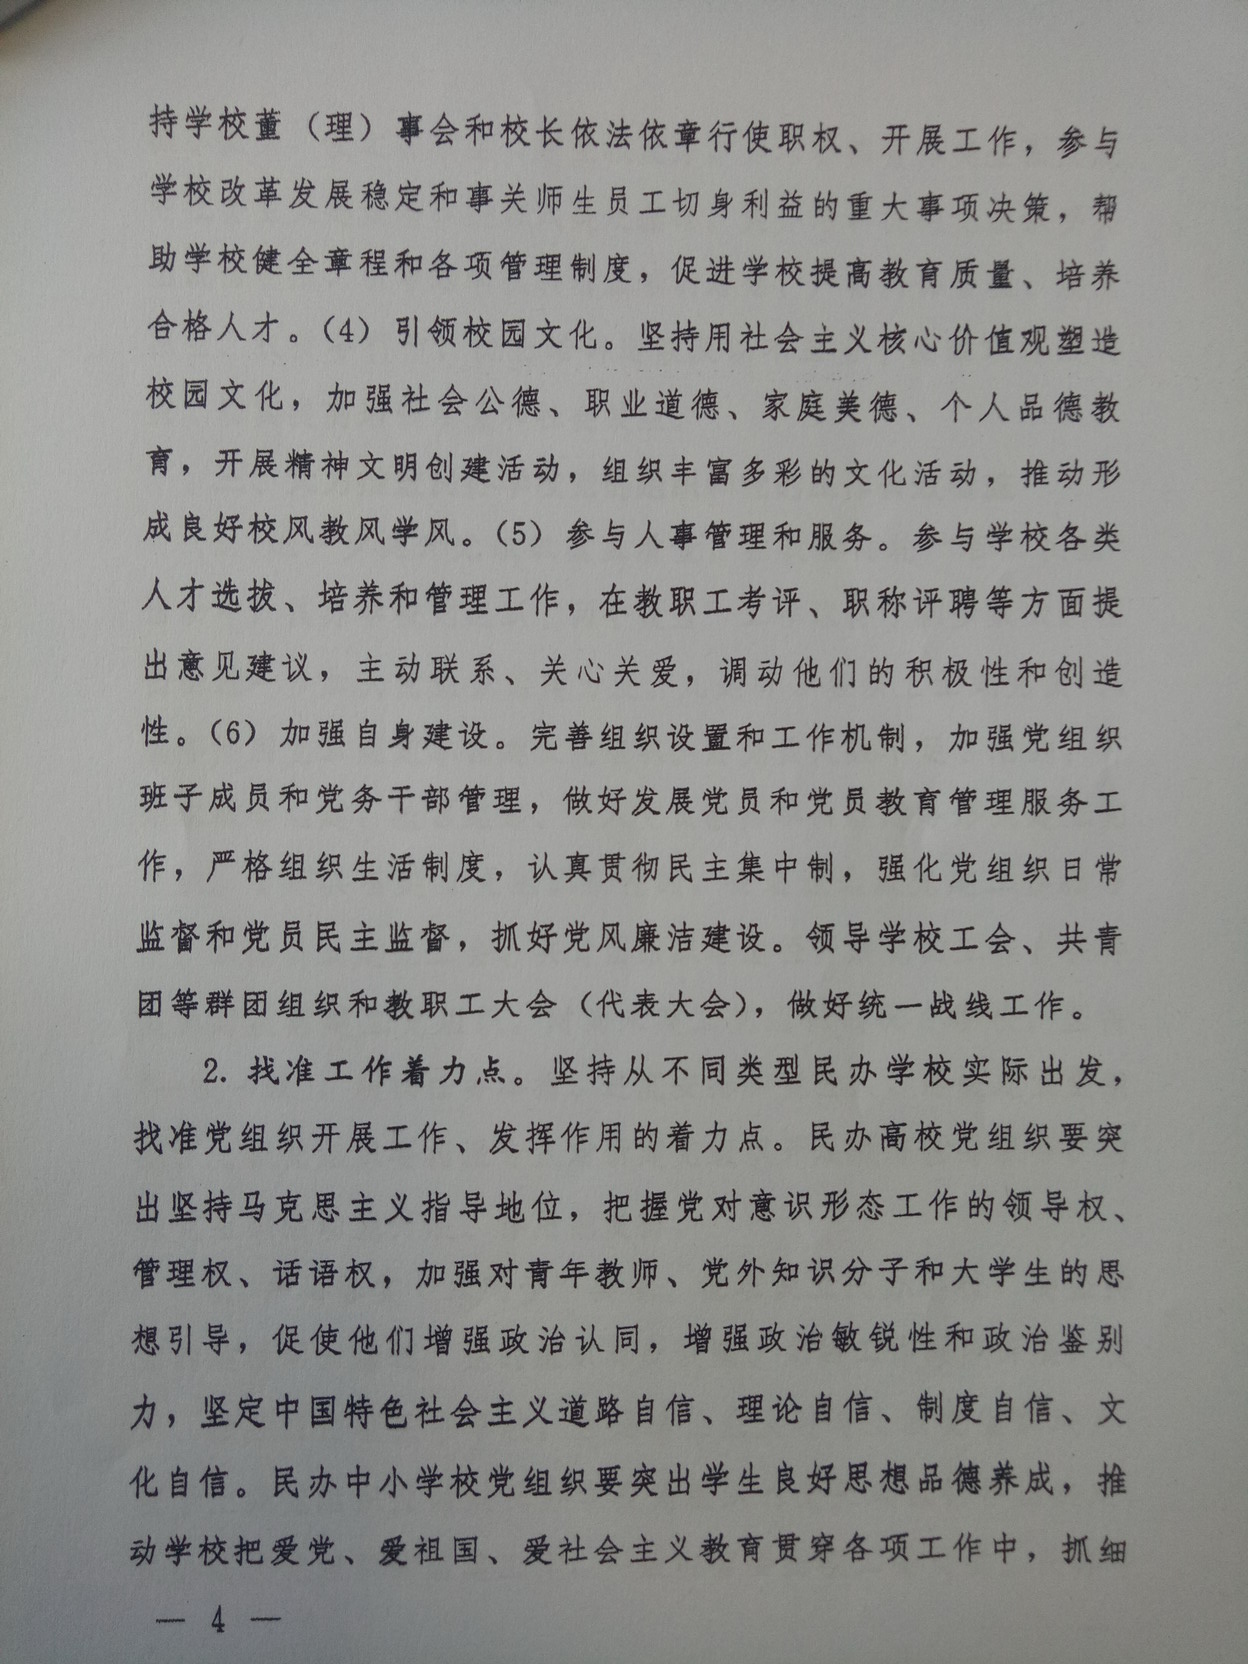 持学校董（理）事会和校长依法依章行使职权、开展工作，参与
学校改革发展稳定和事关师生员工切身利益的重大事项决策，帮
助学校健全章程和各项管理制度，促进学校提高教育质量、培养
合格人才。（4）引领校园文化。坚持用社会主义核心价值观塑造
校园文化，加强社会公德、职业道德、家庭美德、个人品德教
育，开展精神文明创建活动，组织丰富多彩的文化活动，推动形
成良好校风教风学风。（5）参与人事管理和服务。参与学校各类
人才选拔、培养和管理工作，在教职工考评、职称评聘等方面提
出意见建议，主动联系、关心关爱，调动他们的积极性和创造
性。（6）加强自身建设。完善组织设置和工作机制，加强党组织
班子成员和党务干部管理，做好发展党员和党员教育管理服务工
作，严格组织生活制度，认真贯彻民主集中制，强化党组织日常
监督和党员民主监督，抓好党风廉洁建设。领导学校工会、共青
团等群团组织和教职工大会（代表大会），做好统一战线工作。
2. 找准工作着力点。坚持从不同类型民办学校实际出发，
找准党组织开展工作、发挥作用的着力点。民办高校党组织要突
出坚持马克思主义指导地位，把握党对意识形态工作的领导权、
管理权、话语权，加强对青年教师、党外知识分子和大学生的思
想引导，促使他们增强政治认同，增强政治敏锐性和政治鉴别
力，坚定中国特色社会主义道路自信、理论自信、制度自信、文
化自信。民办中小学校党组织要突出学生良好思想品德养成，推
动学校把爱党、爱祖国、爱社会主义教育贯穿各项工作中，抓细
— 4 —